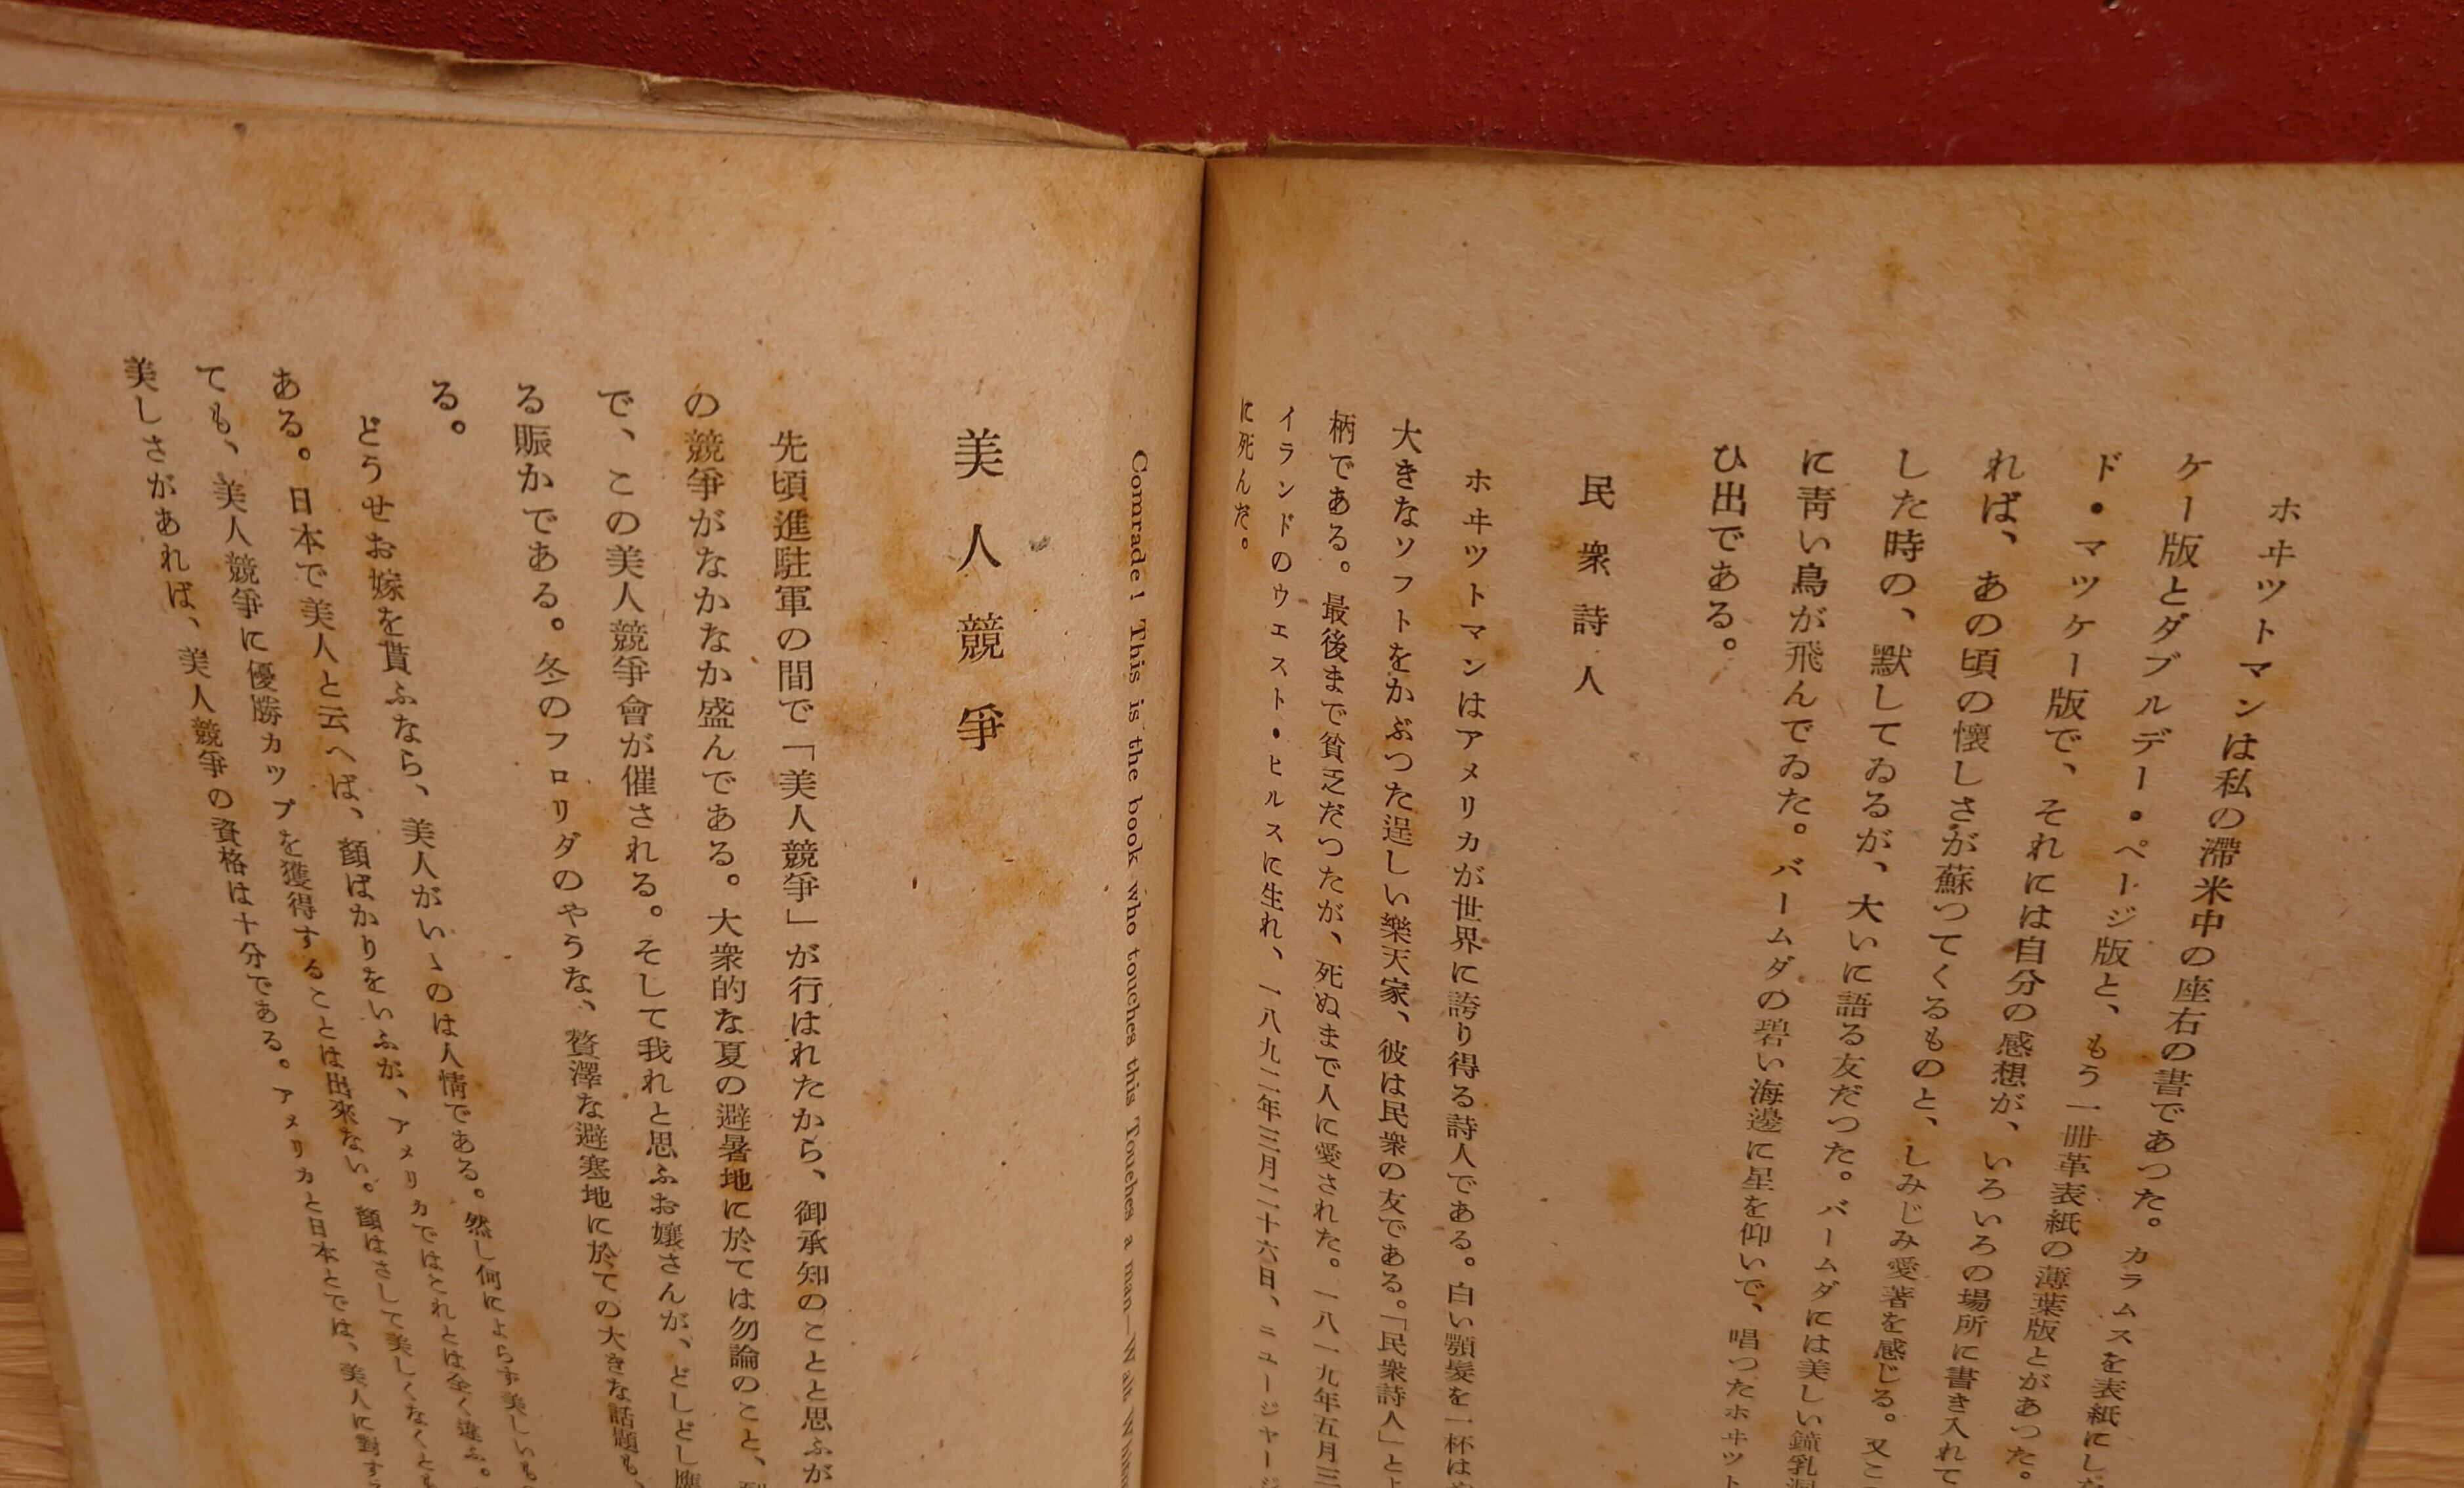 ホヰツトマンは私の滯米中の座右の書であつた。カラムスを表紙にした
ケー版とダブルデー・ページ版と、もう一冊革表紙の薄葉版とがあつた。
ド・マツケー版で、それには自分の感想が、いろいろの場所に書き入れて
れば、あの頃の懷しさが蘇つてくるものと、しみじみ愛著を感じる。又こ
した時の、默してゐるが、大いに語る友だつた。バームダには美しい鐘乳洞
に靑い鳥が飛んでゐた。バームダの碧い海邊に星を仰いで、唱つたホヰツト
ひ出である。
民衆詩人
ホヰツトマンはアメリカが世界に誇り得る詩人である。白い顎髮を一杯は
大きなソフトをかぶつた逞しい樂天家、彼は民衆の友である。「民衆詩人」とよ
柄である。最後まで貧乏だつたが、死ぬまで人に愛された。一八一九年五月三
イランドのウエスト・ヒルスに生れ、一八九二年三月二十六日、ニュージャージ
に死んだ。
Comrade! This is the book who touches this Touches a man—Walt Whitm
美人競爭
先頃進駐軍の間で「美人競爭」が行はれたから、御承知のことと思ふが
の競爭がなかなか盛んである。大衆的な夏の避暑地に於ては勿論のこと、
で、この美人競爭會が催される。そして我れと思ふお孃さんが、どしどし應
る賑かである。冬のフロリダのやうな、贅澤な避寒地に於ての大きな話題も、
る。
どうせお嫁を貰ふなら、美人がいゝのは人情である。然し何によらず美しいも
ある。日本で美人と云へば、顏ばかりをいふが、アメリカではこれとは全く違ふ。
ても、美人競爭に優勝カツプを獲得することは出來ない。顏はさして美しくなくとも
美しさがあれば、美人競爭の資格は十分である。アメリカと日本とでは、美人に對す